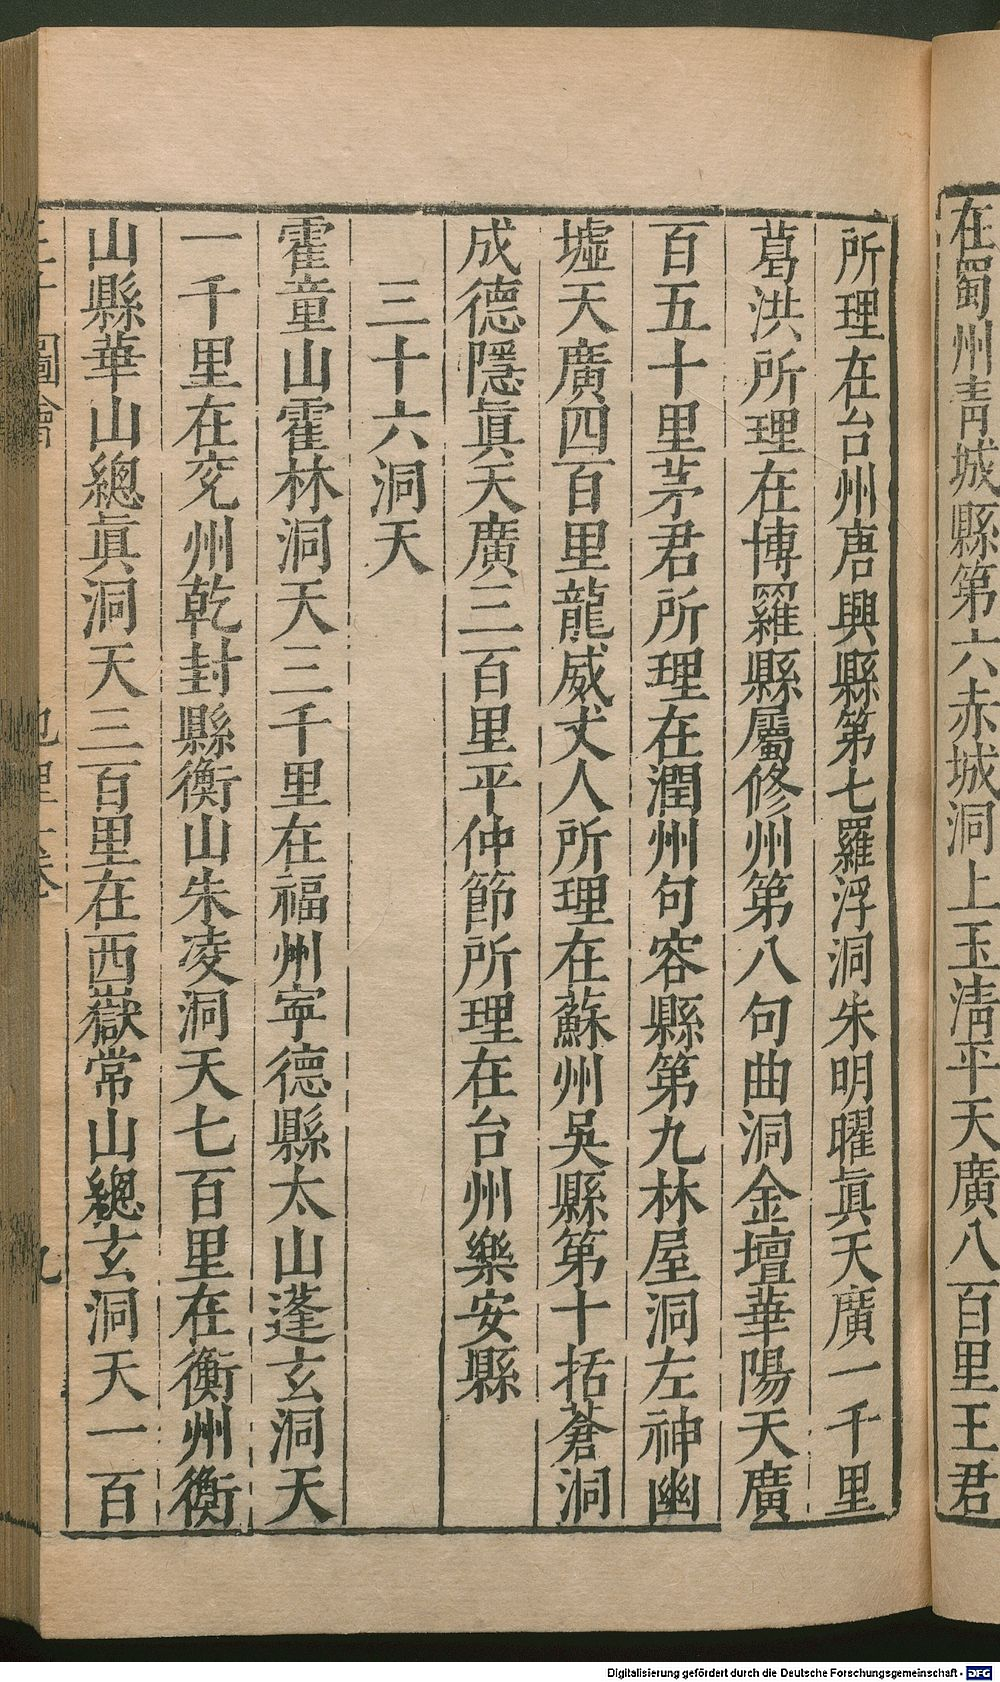 在蜀州青城縣第六赤城洞上玉清平天廣八百里王君
所理在台州唐興縣第七羅浮洞朱明曜眞天廣一千里
葛洪所理在博羅縣屬修州第八句曲洞金壇華陽天廣
百五十里茅君所理在潤州句容縣第九林屋洞左神幽
墟天廣四百里龍威丈人所理在蘇州吳縣第十括蒼洞
成德隱眞天廣三百里平仲節所理在台州樂安縣
三十六洞天
霍童山霍林洞天三千里在福州寧德縣太山蓬玄洞天
一千里在兖州乾封縣衡山朱凌洞天七百里在衡州衡
山縣華山總眞洞天三百里在西嶽常山總玄洞天一百
圖會 地理 卷 九
Digitalisierung gefördert durch die Deutsche Forschungsgemeinschaft - DFG